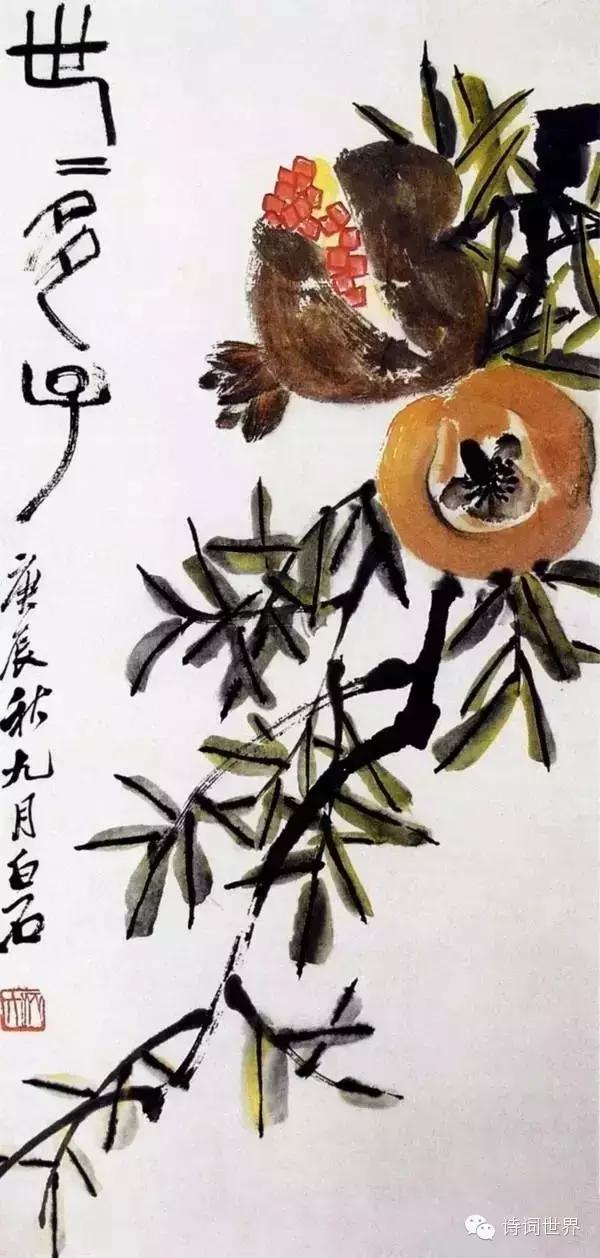 世二多子
庚辰秋九月白石
诗词世界